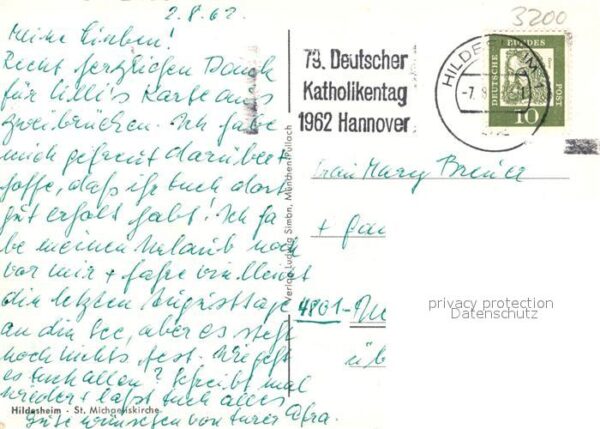 2.8.62
Meine Lieben!
Recht herzlichen Dank
für Lilli's Karte aus
Zweibrücken. Ich habe
mich gefreut darüber +
hoffe, daß ihr Euch dort
gut erholt habt! Ich ha
be meinen Urlaub noch
vor mir + fahre vielleicht
die letzten Augusttage
an die See, aber es steht
noch nichts fest. Wie geht
es Euch allen? Schreibt mal
wieder + laßt Euch alles
Gute wünschen von Eurer Afra.
Hildesheim - St. Michaeliskirche
Verlag Ludwig Simon, München-Pullach
3200
79. Deutscher
Katholikentag
1962 Hannover
HILDESHEIM
-7.8.
DEUTSCHE
BUNDES
POST
10
Frau Mary Breuer
+ Fam
4801-
üb
privacy protection
Datenschutz